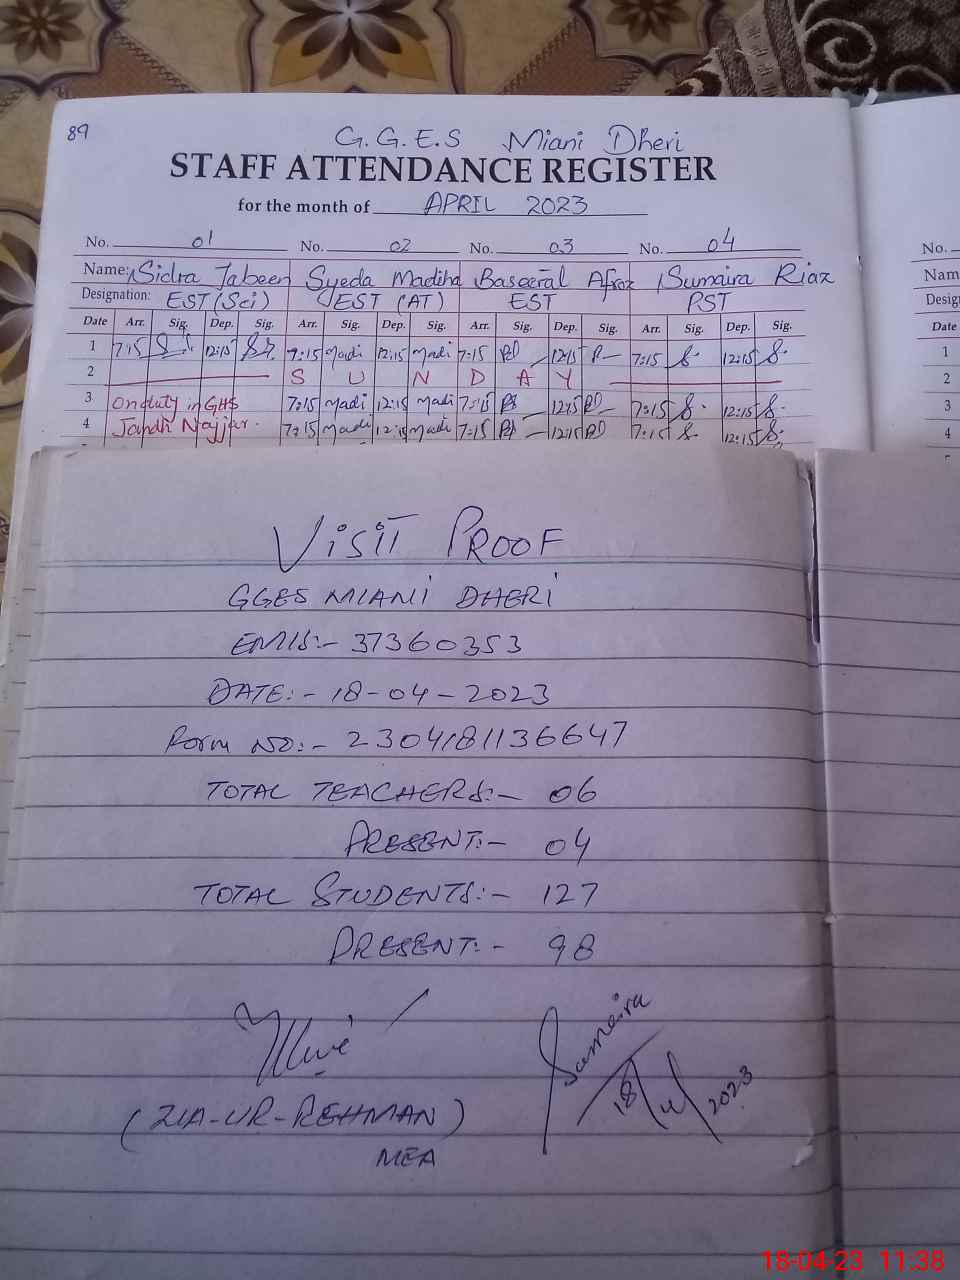 89
G.G.E.S Miani Dheri
STAFF ATTENDANCE REGISTER
for the month of APRIL 2023
No. 01 No. 02 No. 03 No. 04 No.
Name: Sidra Jabeen Syeda Madiha Baseerat Afroz Sumaira Riaz Nam
Designation: EST (Sci) EST (AT) EST PST Desig
Date Arr. Sig. Dep. Sig. Arr. Sig. Dep. Sig. Arr. Sig. Dep. Sig. Arr. Sig. Dep. Sig. Date
1 7:15 12:15 7:15 Madi 12:15 Madi 7:15 12:15 7:15 12:15 1
2 SUNDAY 2
3 On duty in GHS 7:15 Madi 12:15 Madi 7:15 12:15 7:15 12:15 3
4 Jandh Najjar. 7:15 Madi 12:15 Madi 7:15 12:15 7:15 12:15 4
VISIT PROOF
GGES MIANI DHERI
EMIS:- 37360353
DATE:- 18-04-2023
Form NO:- 2304181136647
TOTAL TEACHERS:- 06
PRESENT:- 04
TOTAL STUDENTS:- 127
PRESENT:- 98
Sumaira
18/4/2023
(ZIA-UR-REHMAN)
MEA
18-04-23 11:38